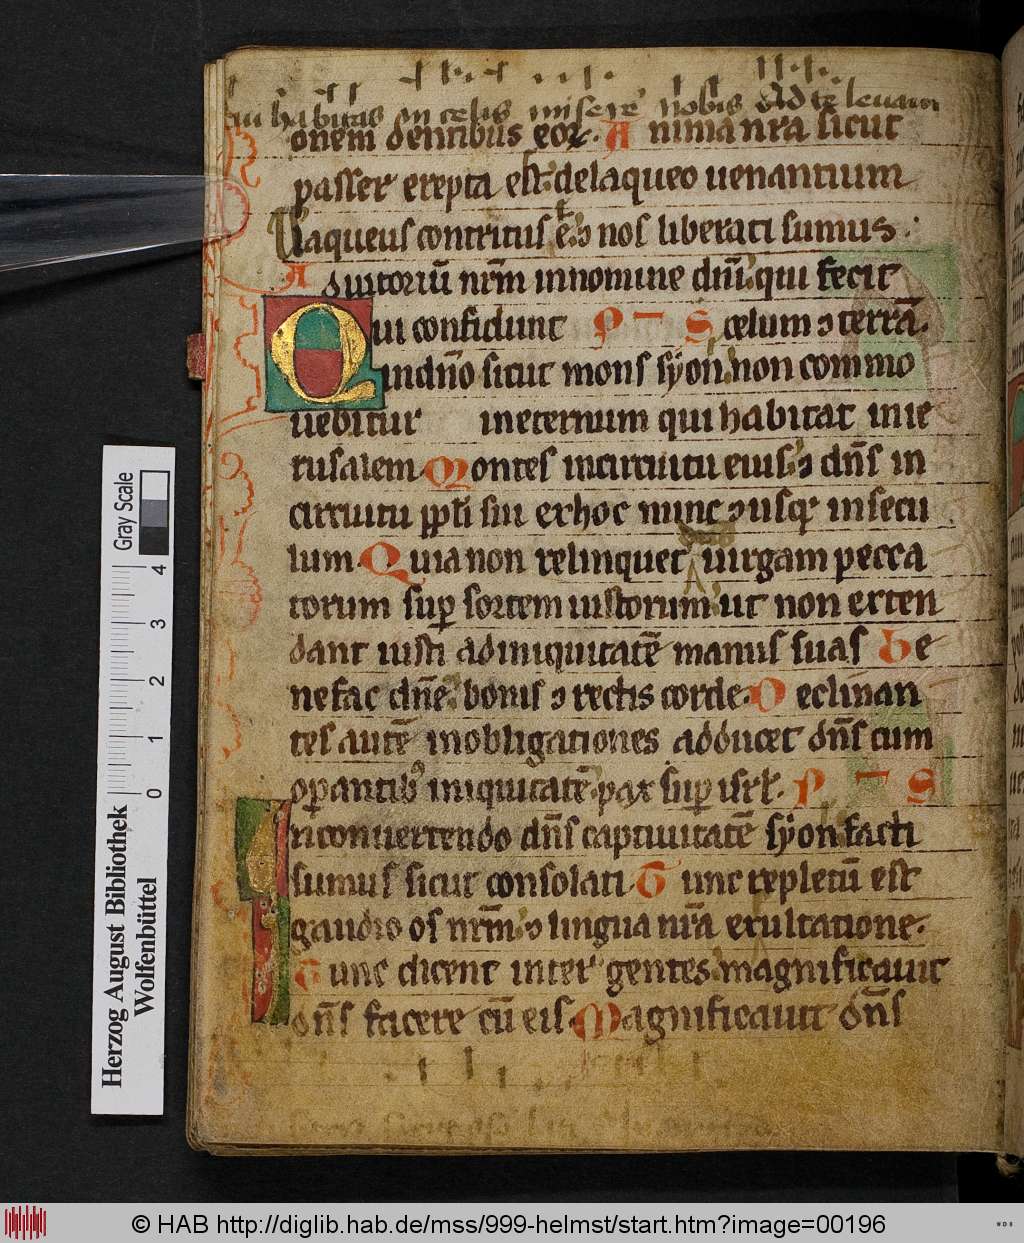 qui habitas in celis misere nobis Ad te leuaui
onem dentibus eoꝝ. Anima nr̄a sicut
passer erepta est: de laqueo uenantium
Laqueus contritus ē: ⁊ nos liberati sumus.
Adiutoriū nr̄m in nomine dn̄i: qui fecit
Qui confidunt P̄S celum ⁊ terrā.
in dn̄o sicut mons syon: non commo
uebitur in eternum qui habitat in ie
rusalem. Montes in circuitu eius: ⁊ dn̄s in
circuitu ppl̄i sui ex hoc nunc ⁊ usqꝫ in secu
lum. Quia non relinquet uirgam pecca
torum suꝑ sortem iustorum: ut non exten
dant iusti ad iniquitatē manus suas Be
nefac dn̄e: bonis ⁊ rectis corde. Declinan
tes autē in obligationes adducet dn̄s cum
oꝑantibꝰ iniquitatē: pax suꝑ isrl̄. P̄S
In conuertendo dn̄s captiuitatē syon facti
sumus sicut consolati. Tunc repletū est
gaudio os nr̄m: ⁊ lingua nr̄a exultatione.
Tunc dicent inter gentes: magnificauit
dn̄s facere cū eis. Magnificauit dn̄s
Herzog August Bibliothek
Wolfenbüttel
0 1 2 3 4
Gray Scale
© HAB http://diglib.hab.de/mss/999-helmst/start.htm?image=00196
WDB